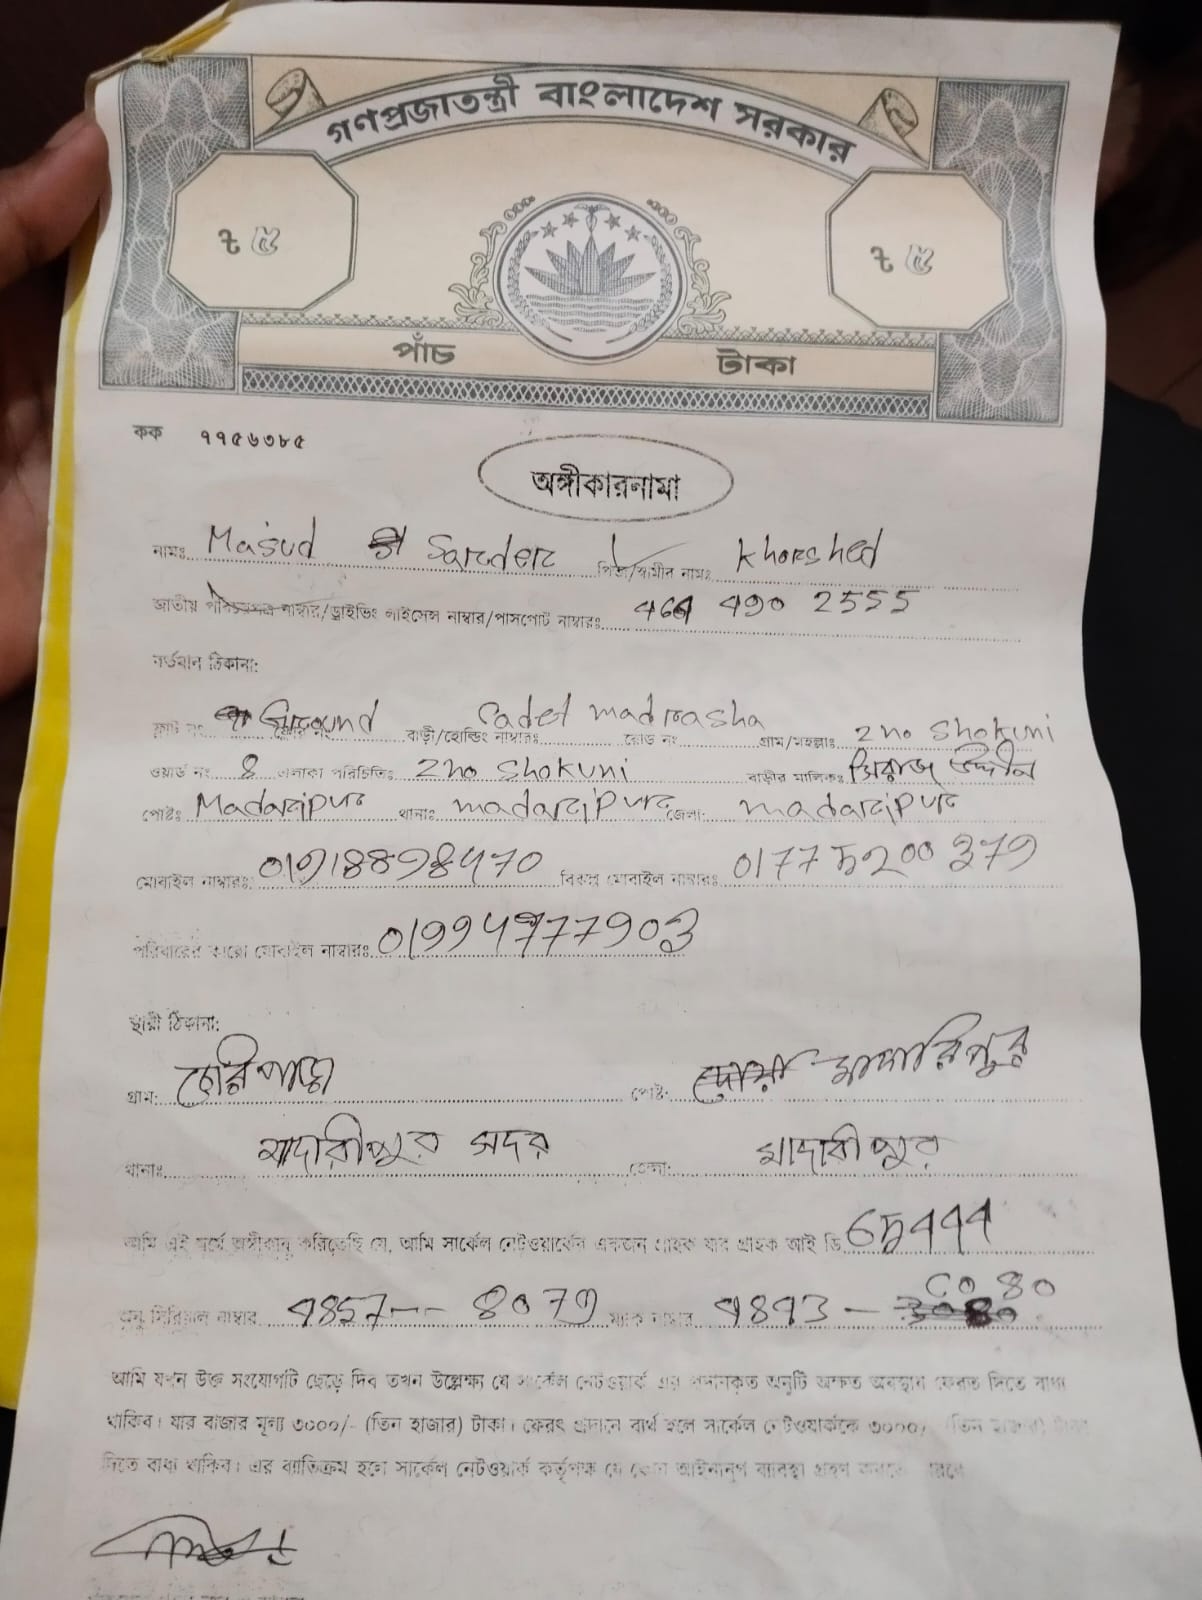 গণপ্রজাতন্ত্রী বাংলাদেশ সরকার
৳ ৫ ৳ ৫
পাঁচ টাকা
কক ৭৭৫৬৩৮৫
অঙ্গীকারনামা
নামঃ Masud Sarder পিতা/স্বামীর নামঃ Khorshed
জাতীয় পরিচয়পত্র নাম্বার/ড্রাইভিং লাইসেন্স নাম্বার/পাসপোর্ট নাম্বারঃ 464 490 2555
বর্তমান ঠিকানা:
ফ্লাট নং Ground বাড়ী/হোল্ডিং নাম্বারঃ Cadet madrasha রোড নং গ্রাম/মহল্লাঃ 2 no Shokuni
ওয়ার্ড নং 8 এলাকা পরিচিতিঃ 2no Shokuni বাড়ীর মালিকঃ সিরাজ উদ্দীন
পোষ্টঃ Madaripur থানাঃ madaripur জেলা: madaripur
মোবাইল নাম্বারঃ 01918898470 বিকল্প মোবাইল নাম্বারঃ 01775200379
পরিবারের কারো মোবাইল নাম্বারঃ 01994977903
স্থায়ী ঠিকানা:
গ্রাম: পোষ্ট: মাদারিপুর
থানাঃ মাদারীপুর সদর জেলা: মাদারীপুর
আমি এই মর্মে অঙ্গীকার করিতেছি যে, আমি সার্কেল নেটওয়ার্কের একজন গ্রাহক যার গ্রাহক আই ডি 65444
অনু সিরিয়াল নাম্বার 4857-- 8079 ম্যাক নাম্বার 4843 - C0 80
আমি যখন উক্ত সংযোগটি ছেড়ে দিব তখন উল্লেক্ষ্য যে সার্কেল নেটওয়ার্ক এর প্রদানকৃত অনুটি অক্ষত অবস্থায় ফেরত দিতে বাধ্য
থাকিব। যার বাজার মূল্য ৩০০০/- (তিন হাজার) টাকা। ফেরৎ প্রদানে ব্যর্থ হলে সার্কেল নেটওয়ার্ককে ৩০০০/ (তিন হাজার) টাকা
দিতে বাধ্য থাকিব। এর ব্যতিক্রম হলে সার্কেল নেটওয়ার্ক কর্তৃপক্ষ যে কোন আইনানুগ ব্যবস্থা গ্রহণ করতে পারবে